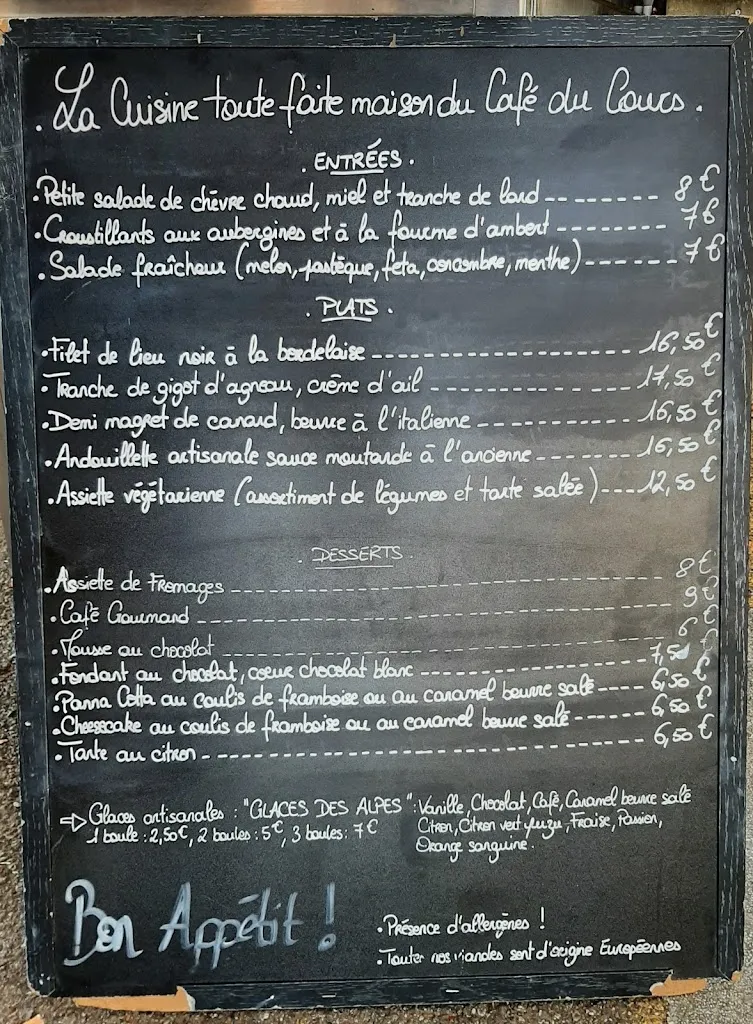 . La Cuisine toute faite maison du Café du Cours .
. ENTRÉES .
. Petite salade de chèvre chaud, miel et tranche de lard -------- 8 €
. Croustillants aux aubergines et à la fourme d'ambert -------- 7 €
. Salade fraîcheur (melon, pastèque, feta, concombre, menthe) ------ 7 €
. PLATS .
. Filet de lieu noir à la bordelaise -------- 16,50 €
. Tranche de gigot d'agneau, crème d'ail -------- 17,50 €
. Demi magret de canard, beurre à l'italienne -------- 16,50 €
. Andouillette artisanale sauce moutarde à l'ancienne -------- 16,50 €
. Assiette végétarienne (assortiment de légumes et tarte salée) --- 12,50 €
. DESSERTS .
. Assiette de Fromages -------- 8 €
. Café Gourmand -------- 9 €
. Mousse au chocolat -------- 6 €
. Fondant au chocolat, coeur chocolat blanc -------- 7,50 €
. Panna Cotta au coulis de framboise ou au caramel beurre salé ----- 6,50 €
. Cheesecake au coulis de framboise ou au caramel beurre salé ------ 6,50 €
. Tarte au citron -------- 6,50 €
⇨ Glaces artisanales : "GLACES DES ALPES" : Vanille, Chocolat, Café, Caramel beurre salé
1 boule : 2,50€, 2 boules : 5€, 3 boules : 7 € Citron, Citron vert yuzu, Fraise, Passion,
Orange sanguine .
Bon Appétit !
. Présence d'allergènes !
. Toutes nos viandes sont d'origine Européennes